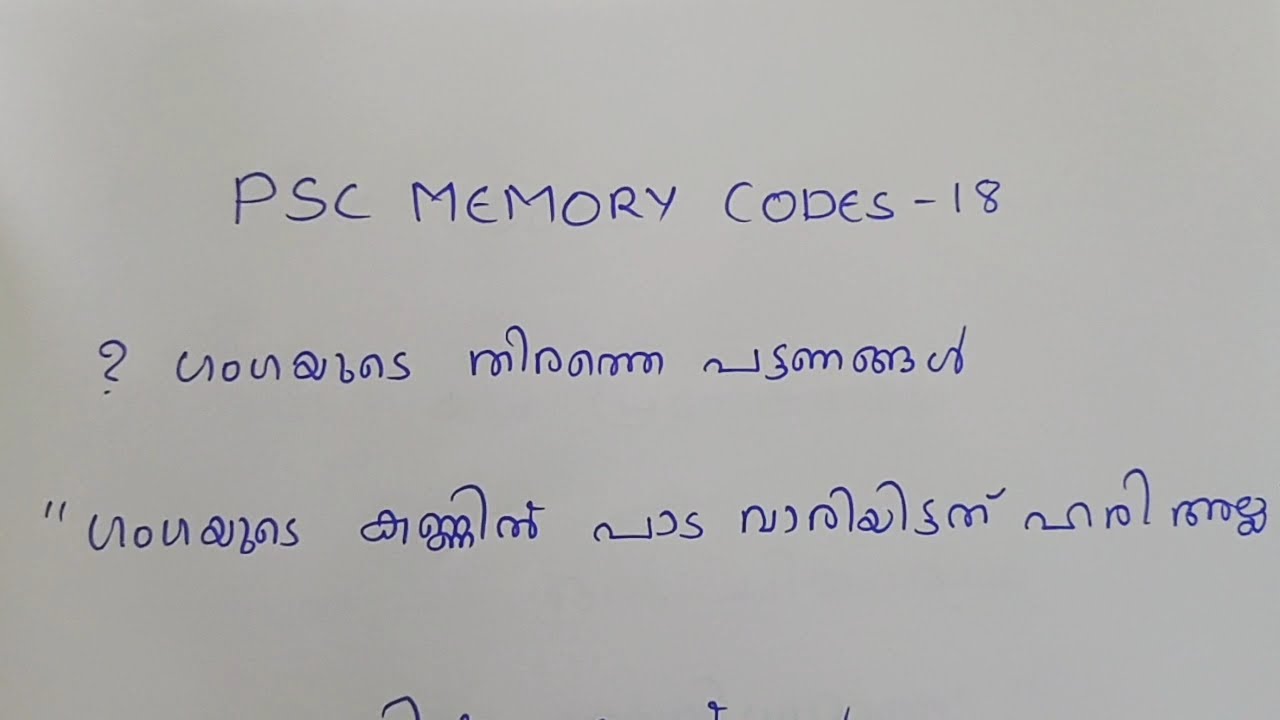 PSC MEMORY CODES - 18
? ഗംഗയുടെ തിരത്തെ പട്ടണങ്ങൾ
" ഗംഗയുടെ കണ്ണിൽ പാട വാരിയിട്ടത് ഹരി അല്ല